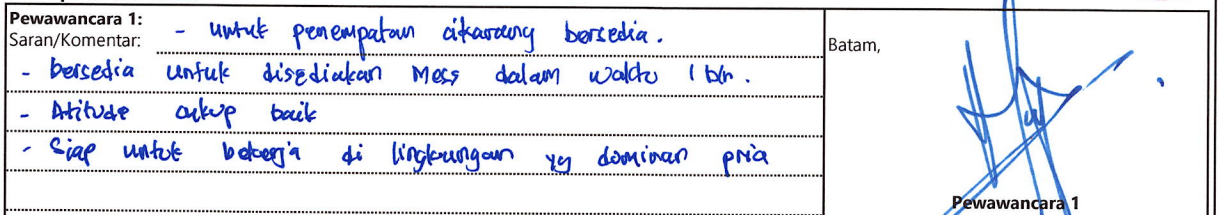 Pewawancara 1:
Saran/Komentar: - untuk penempatan cikarang bersedia.
- bersedia untuk disediakan Mess dalam waktu 1 bln.
- Atitude cukup baik
- Siap untuk bekerja di lingkungan yg dominan pria
Batam,
Pewawancara 1